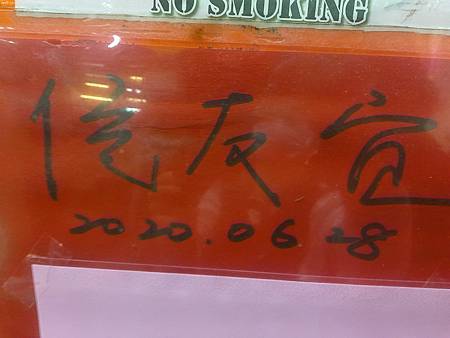 NO SMOKING
侯友宜
2020.06.28